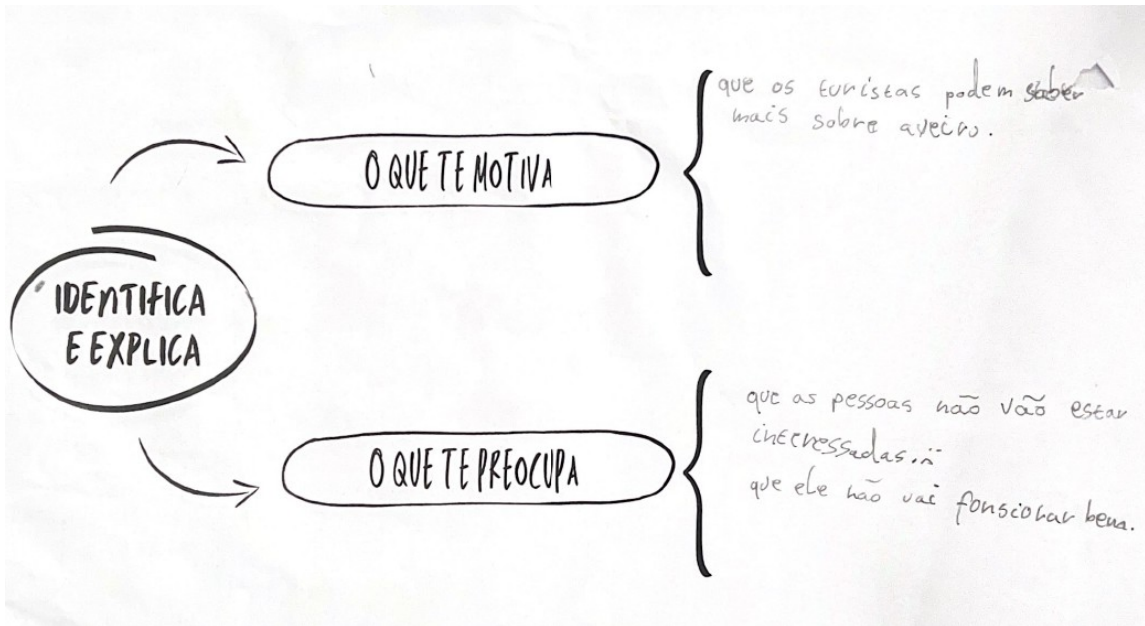 IDENTIFICA
E EXPLICA
O QUE TE MOTIVA
que os turistas podem saber
mais sobre aveiro.
O QUE TE PREOCUPA
que as pessoas não vão estar
interessadas.
que ele não vai fonscionar bem.